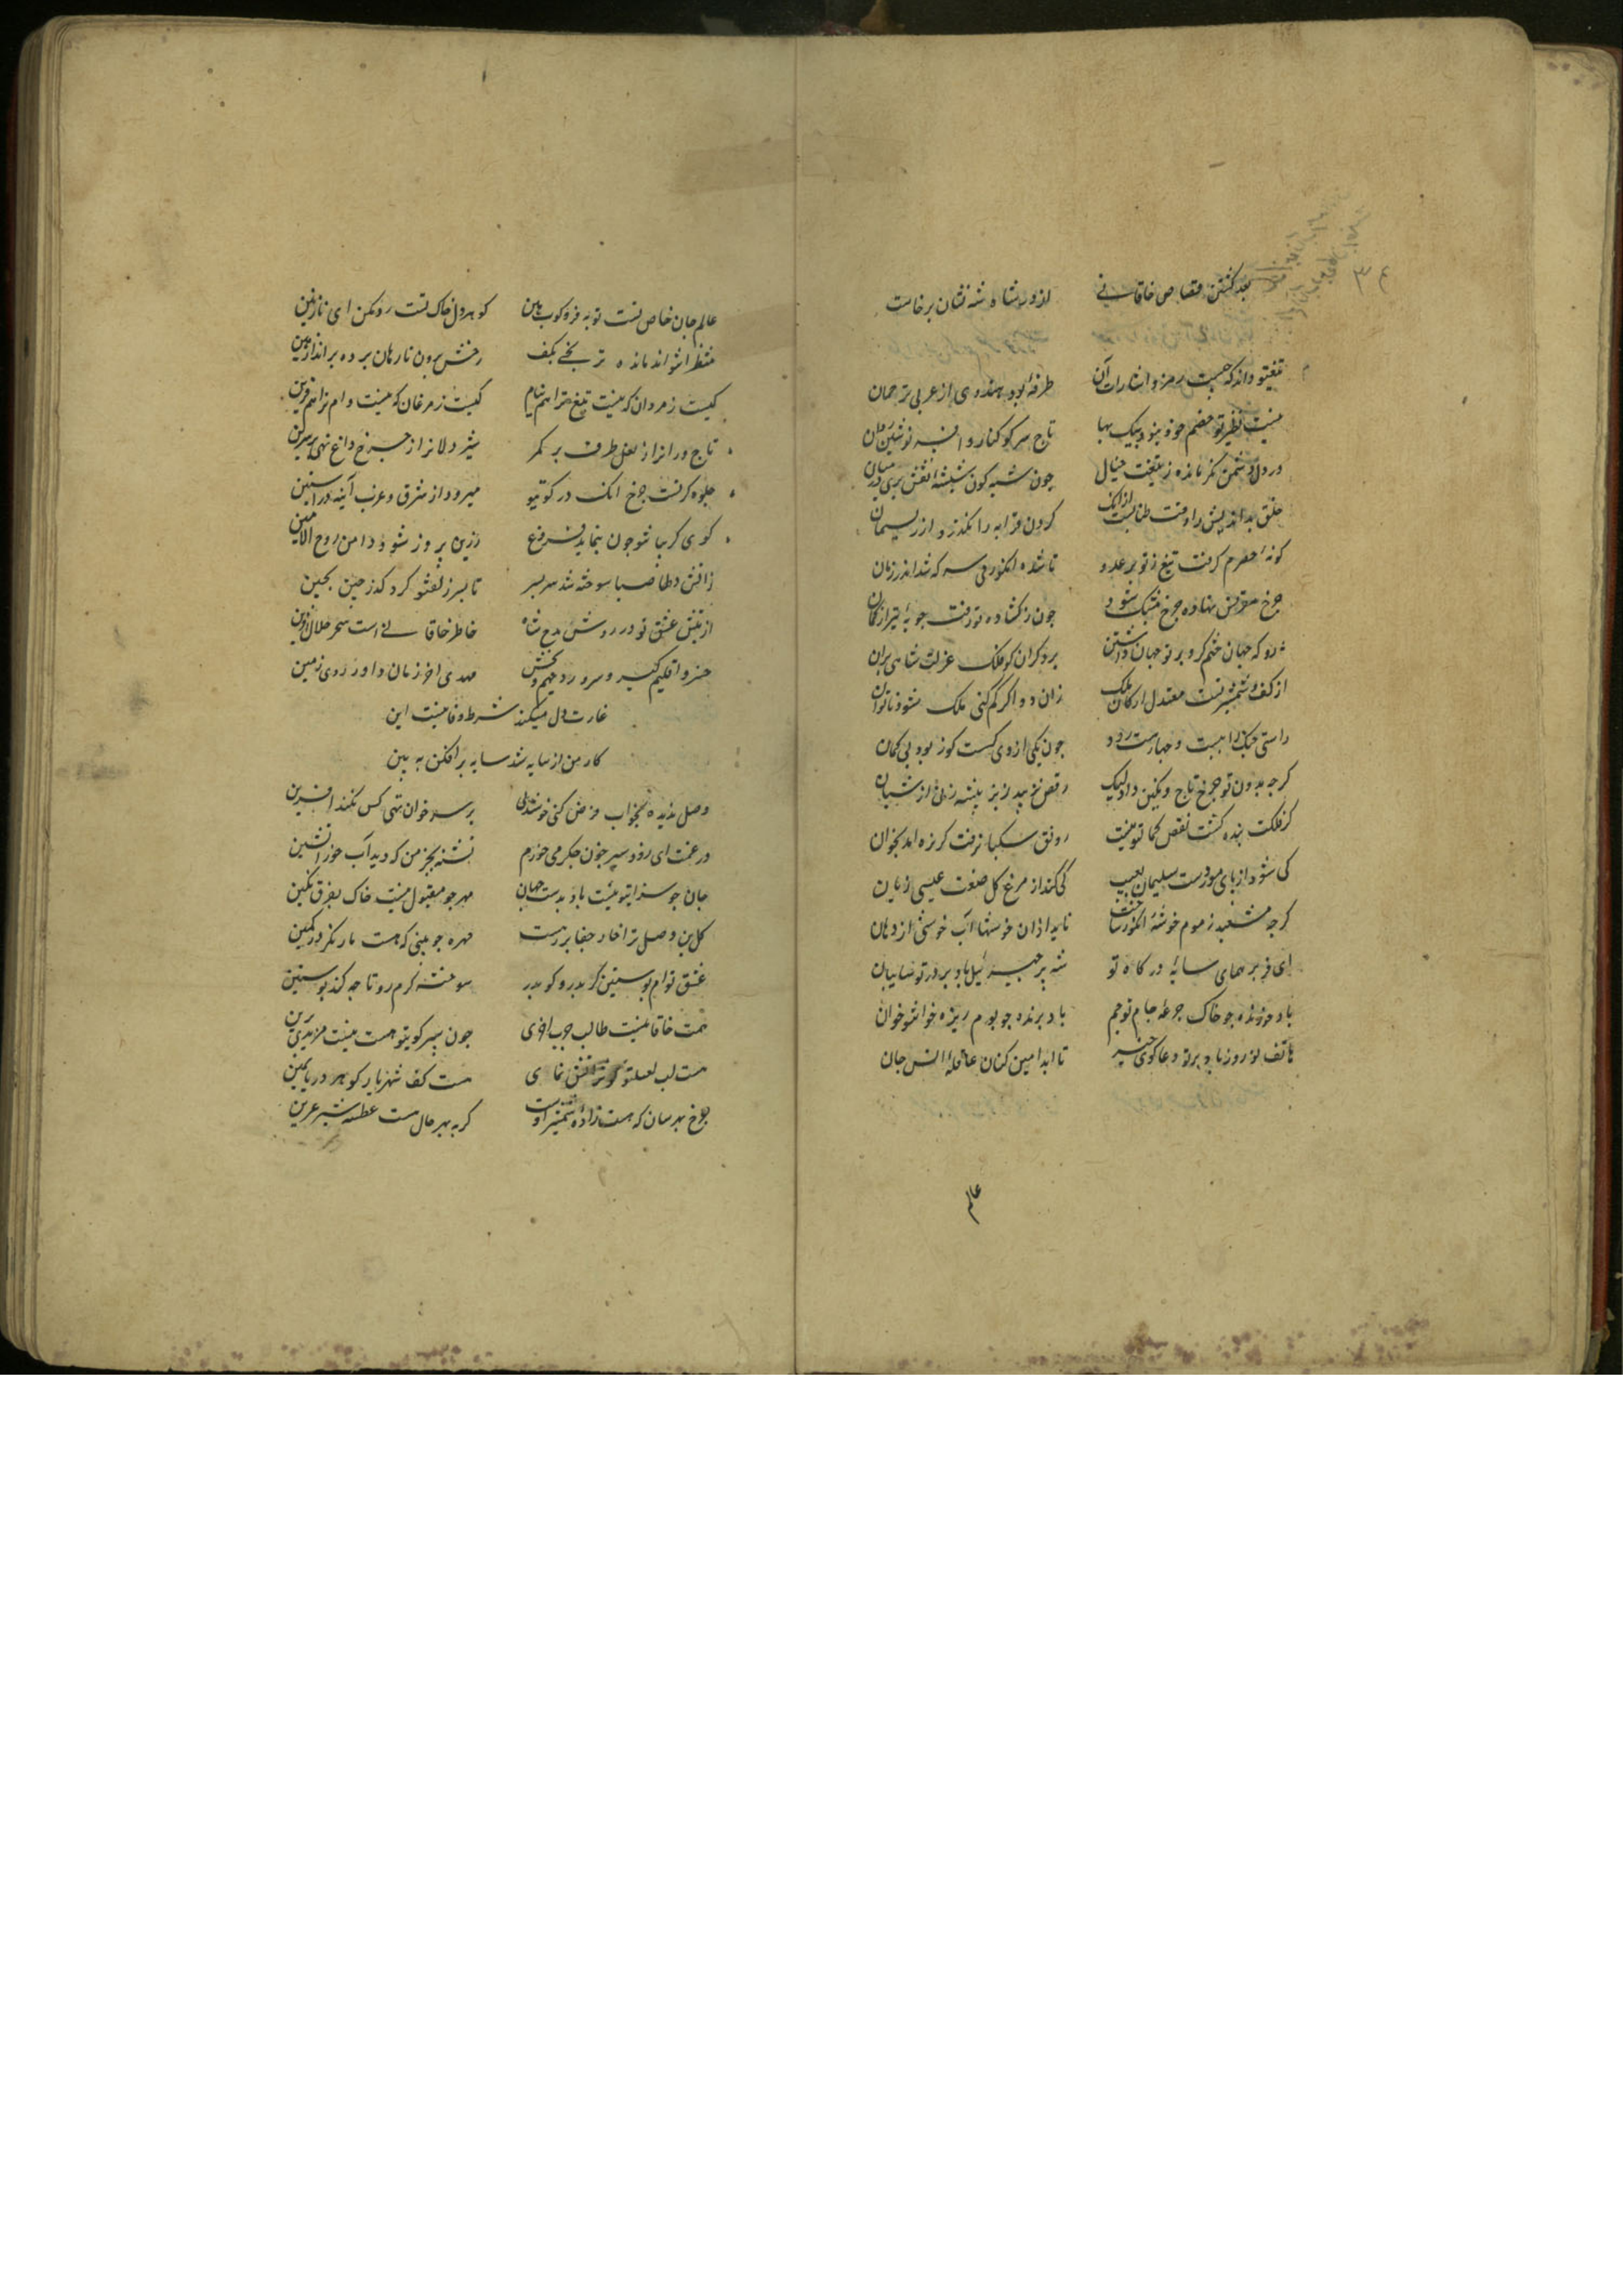 بعد کشتن قصاص خاقانی از در شاه شه نشان برخاست
تیغ تو داند که چیست رمز و اشارات آن طرفه بود هندوی از عربی ترجمان
نیست نظیر تو خصم خود نبود یک بها تاج سر کوکنار و افسر نوشین روان
در دل دشمن نگر مانده ز تیغت خیال چون شبه گون شیشهٔ نقش پری در میان
خلق بداندیش را وقت طناب است از آنک گردن قرابه را نگذرد از ریسمان
گونه حصرم گرفت تیغ تو بر عدو ناشده انگور می سرکه شد اندر زمان
چرخ مقرنس نهاد چرخ مشبک شود چون ز گشاد تو رفت چوبهٔ تیر از کمان
رو که جهان ختم کرد بر تو جهان داشتن بر دگران گو فلک عزلت شاهی بران
از کف و شمشیر تست معتدل ارکان ملک زان دو اگر کم کنی ملک شود ناتوان
راستی چنگ را بیست و چهارست رود چون یکی از وی گسست کوژ بود بی گمان
گرچه بدون تو چرخ تاج و نگین داد لیک رقص نزیبد ز بز بیشه زنی از شبان
گر فلکت بنده گشت نقص کمال تو نیست رونق سکبا نرفت گر تره آمد بخوان
کی شود از پای مور دست سلیمان بعیب کی کند از مرغ گل صنعت عیسی زیان
گرچه مشعبد ز موم خوشهٔ انگور ساخت ناید از آن خوشها آب خوشی از دهان
ای فر پر همای سایهٔ درگاه تو شه پر جبرئیل باد بر در تو سایبان
باد خورنده چو خاک جرعهٔ جام تو جم باد برنده چو مور ریزه خوانت خوان
هاتف نوروز باد بر تو دعاگوی خیر تا ابد آمین کنان عاقلهٔ انس جان
عالم
عالم جان خاص تست نوبه فرو کوب هین گوهر دل خاک تست رد مکن ای نازنین
منتظران تو اند مانده ترنجی بکف رخش برون تاز هان پرده برانداز هین
کیست ز مردان که نیست تیغ ترا هم نیام کیست ز مرغان که نیست دام ترا هم قرین
تاج وران را ز لعل طرف نهی بر کمر شیر دلان را ز جزع داغ نهی بر سرین
جلوه گرفت چرخ آنک در کوی تو میرود از مشرق و غرب آینه در آستین
گوی گریبان تو چون بنماید فروغ زرین پروز شود دامن روح الامین
ز آتش دلها صبا سوخته شد سربسر تا بسر زلف تو کرد گذر حین بحین
از تپش عشق تو در روش مدح شاه خاطر خاقانی است سحر حلال آفرین
خسرو اقلیم گیر سرور دیهیم بخش مهدی آخر زمان داور روی زمین
غارت دل میکند شرط وفا نیست این
کار من از سایه شد سایه برافکن ببین
وصل ندیده بخواب فرض کنی خوشدلی بر سر خوان تهی کس نکند آفرین
در غمت ای زود سیر خون جگر می خورم تشنه بجز من که دید آب خور آتشین
جان چو سزای تو نیست باد بدست جهان مهر چو مقبول نیست خاک بفرق نگین
گلبن وصل ترا خار جفا بر رهست مهره چو بینی که هست مار نگر در کمین
عشق توام پوستین گر بدرد گو بدر سوخته گرم رو تا چه کند پوستین
همت خاقانیست طالب چرب آخوری چون سر کوی تو هست نیست مزیدی برین
هست لب لعل تو کوثر آتش نمای هست کف شهریار گوهر دریا یمین
چرخ بهر سان که هست زاده شمشیر اوست گربه بهر حال هست عطسه شیر عرین